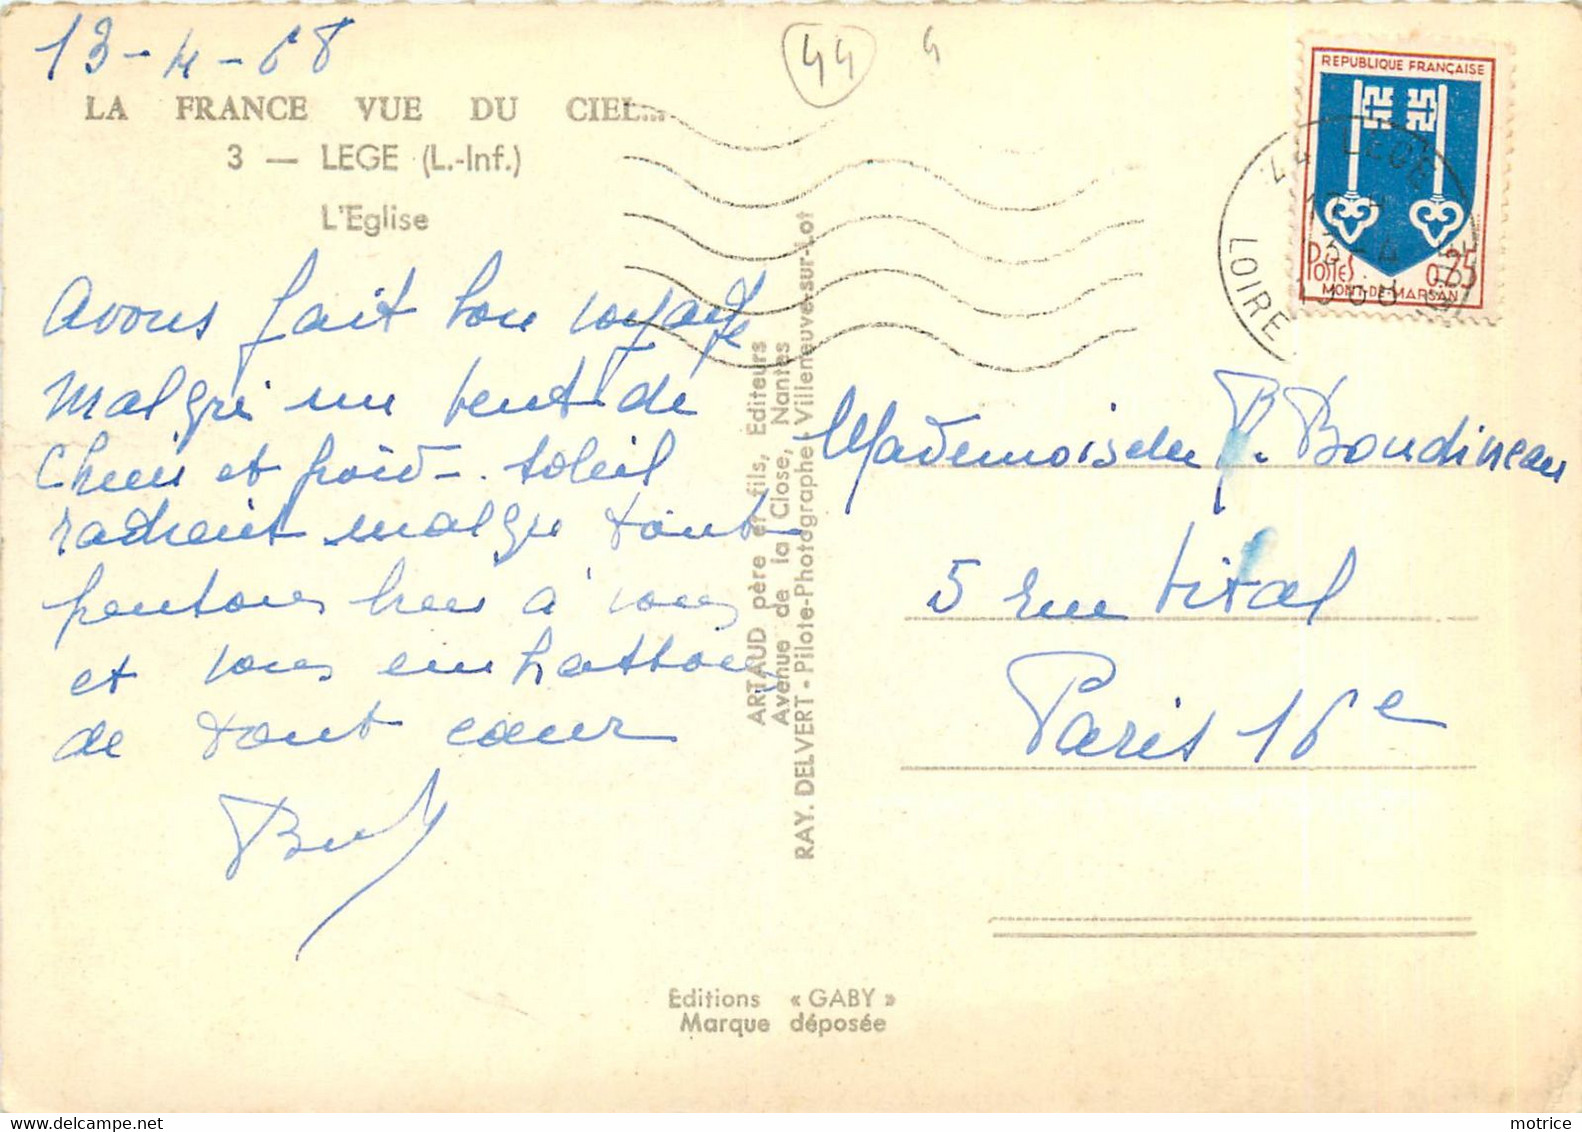 13-4-68
44
4
LA FRANCE VUE DU CIEL...
3 — LEGE (L.-Inf.)
L'Eglise
Avons fait bon voyage
Malgré un vent de
chien et froid - soleil
radieux malgré tout
pensons bien à vous
et vous embrassons
de tout cœur
ARTAUD père et fils, Editeurs
Avenue de la Close, Nantes
RAY. DELVERT - Pilote-Photographe - Villeneuve-sur-Lot
REPUBLIQUE FRANÇAISE
POSTES
0.25
MONT-DE-MARSAN
44 LEGE
13-4
1968
LOIRE
Mademoiselle P. Boudineau
5 rue Vital
Paris 16e
Editions « GABY »
Marque déposée
motrice